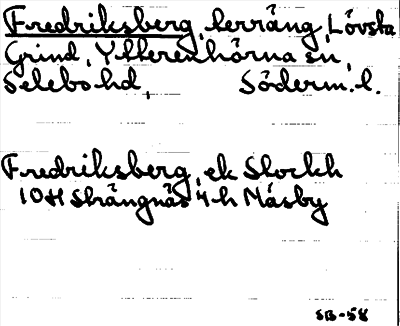 Fredriksberg, terräng, Lövsta
Grind, Ytterenhörna sn,
Selebo hd, Söderm. l.
Fredriksberg, ek Stockh
10H Strängnäs 4 h Måsby
SB-58